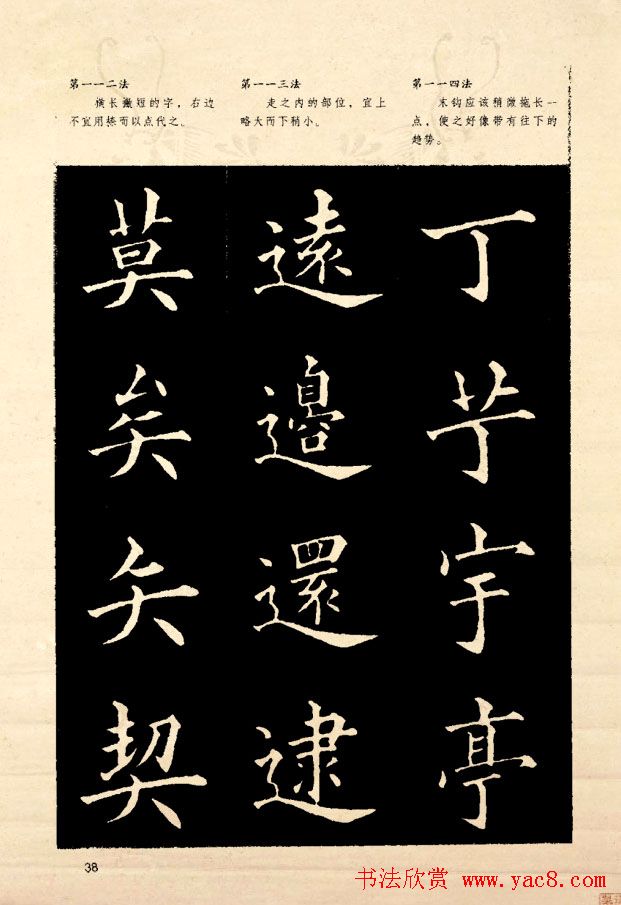 第一一二法
横长撇短的字，右边
不宜用捺而以点代之。
第一一三法
走之内的部位，宜上
略大而下稍小。
第一一四法
末钩应该稍微拖长一
点，使之好像带有往下的
趋势。
莫
矣
矢
契
遠
邊
還
逮
丁
芋
宇
亭
38
书法欣赏 www.yac8.com